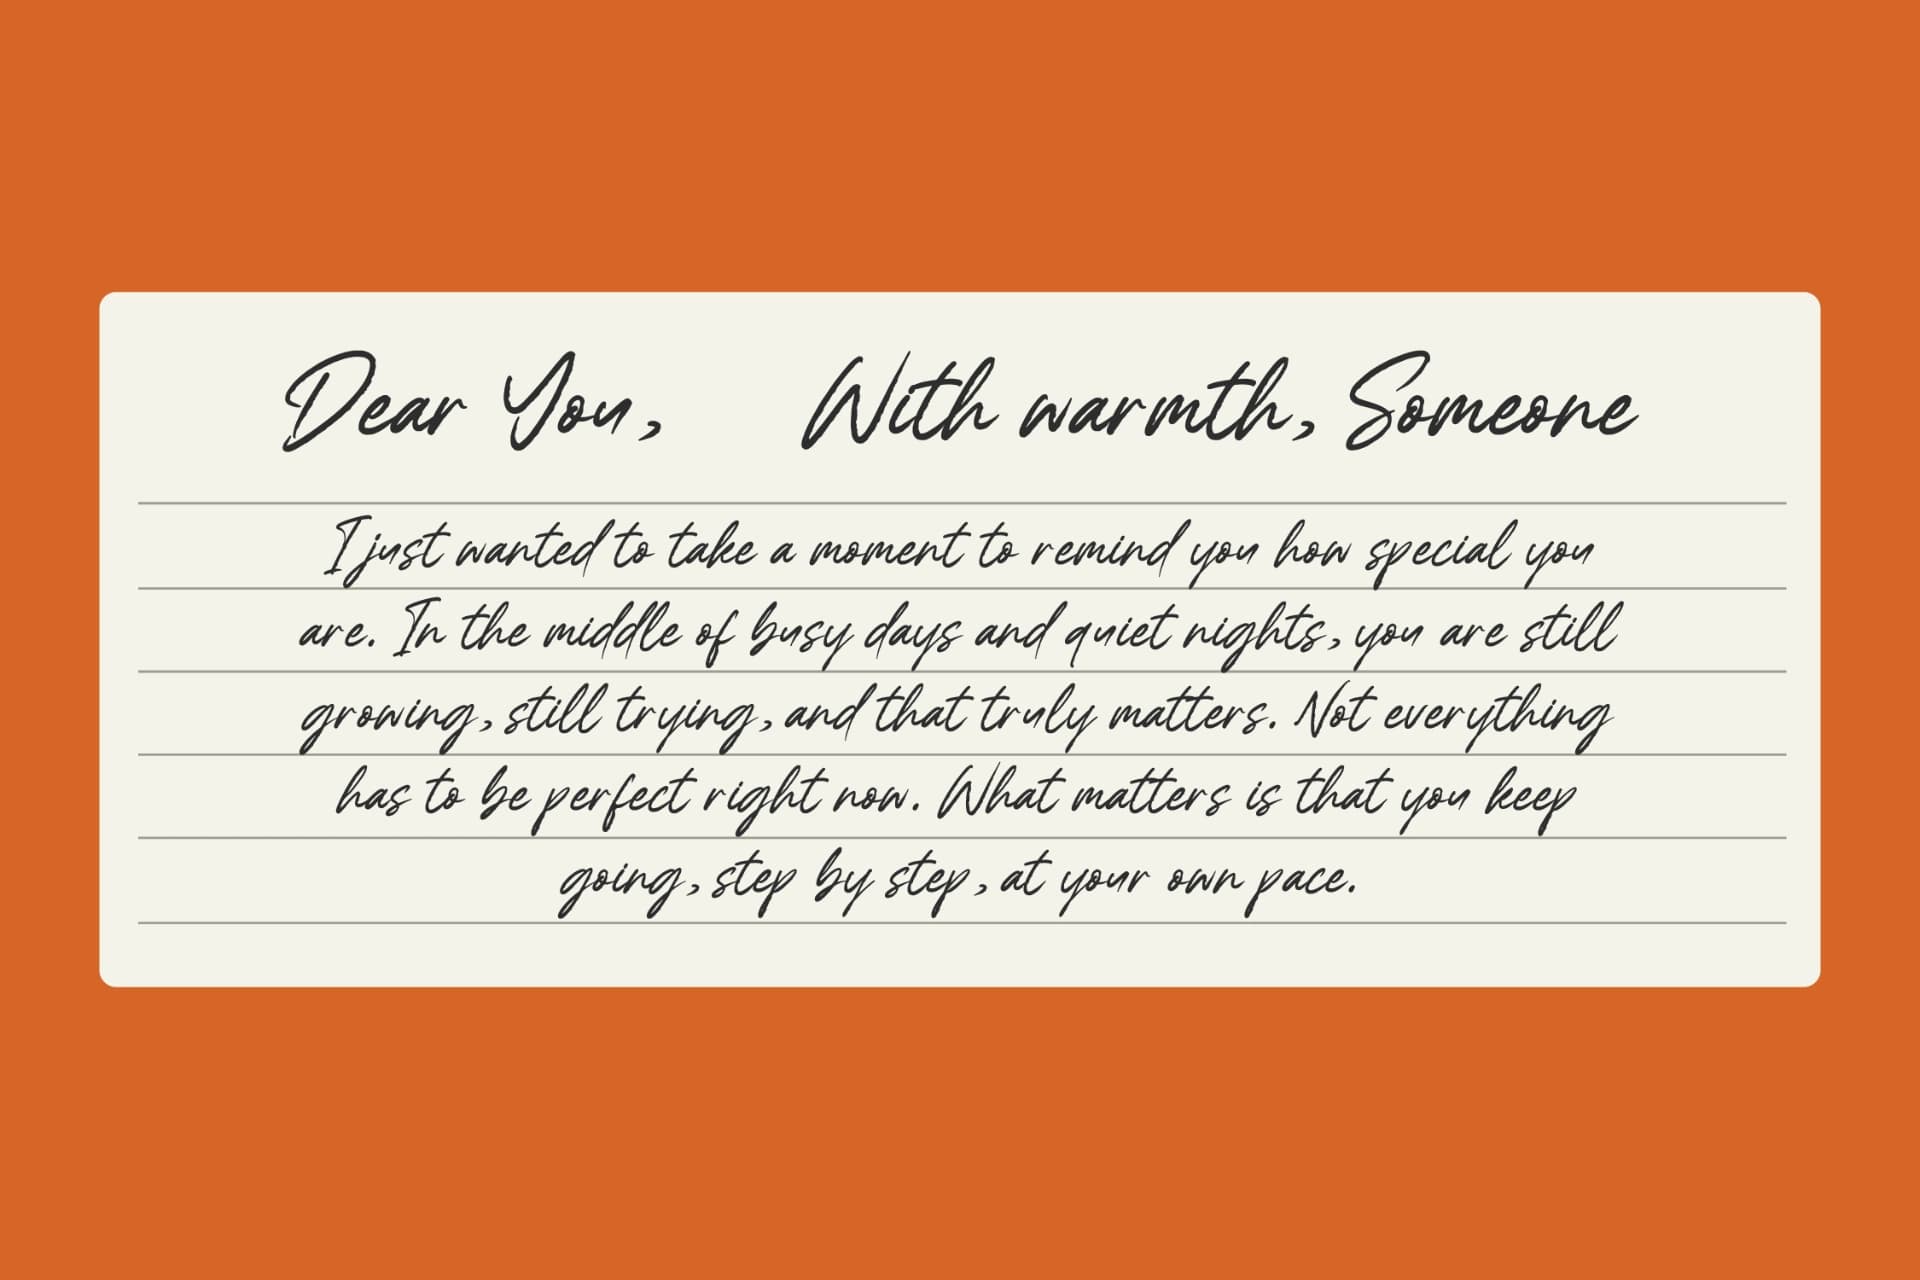 Dear You, With warmth, Someone
I just wanted to take a moment to remind you how special you
are. In the middle of busy days and quiet nights, you are still
growing, still trying, and that truly matters. Not everything
has to be perfect right now. What matters is that you keep
going, step by step, at your own pace.